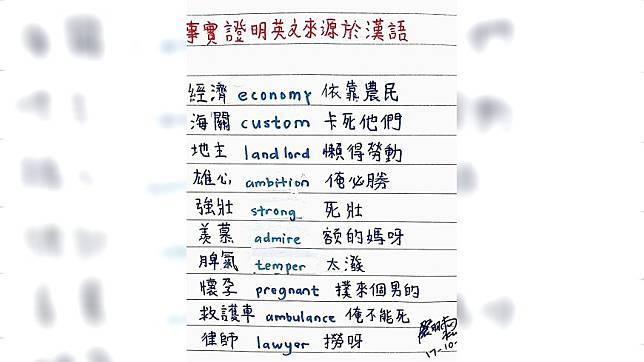 事實證明英文來源於漢語
經濟 economy 依靠農民
海關 custom 卡死他們
地主 landlord 懶得勞動
雄心 ambition 俺必勝
強壯 strong 死壯
羨慕 admire 額的媽呀
脾氣 temper 太潑
懷孕 pregnant 撲來個男的
救護車 ambulance 俺不能死
律師 lawyer 撈呀
17-10-